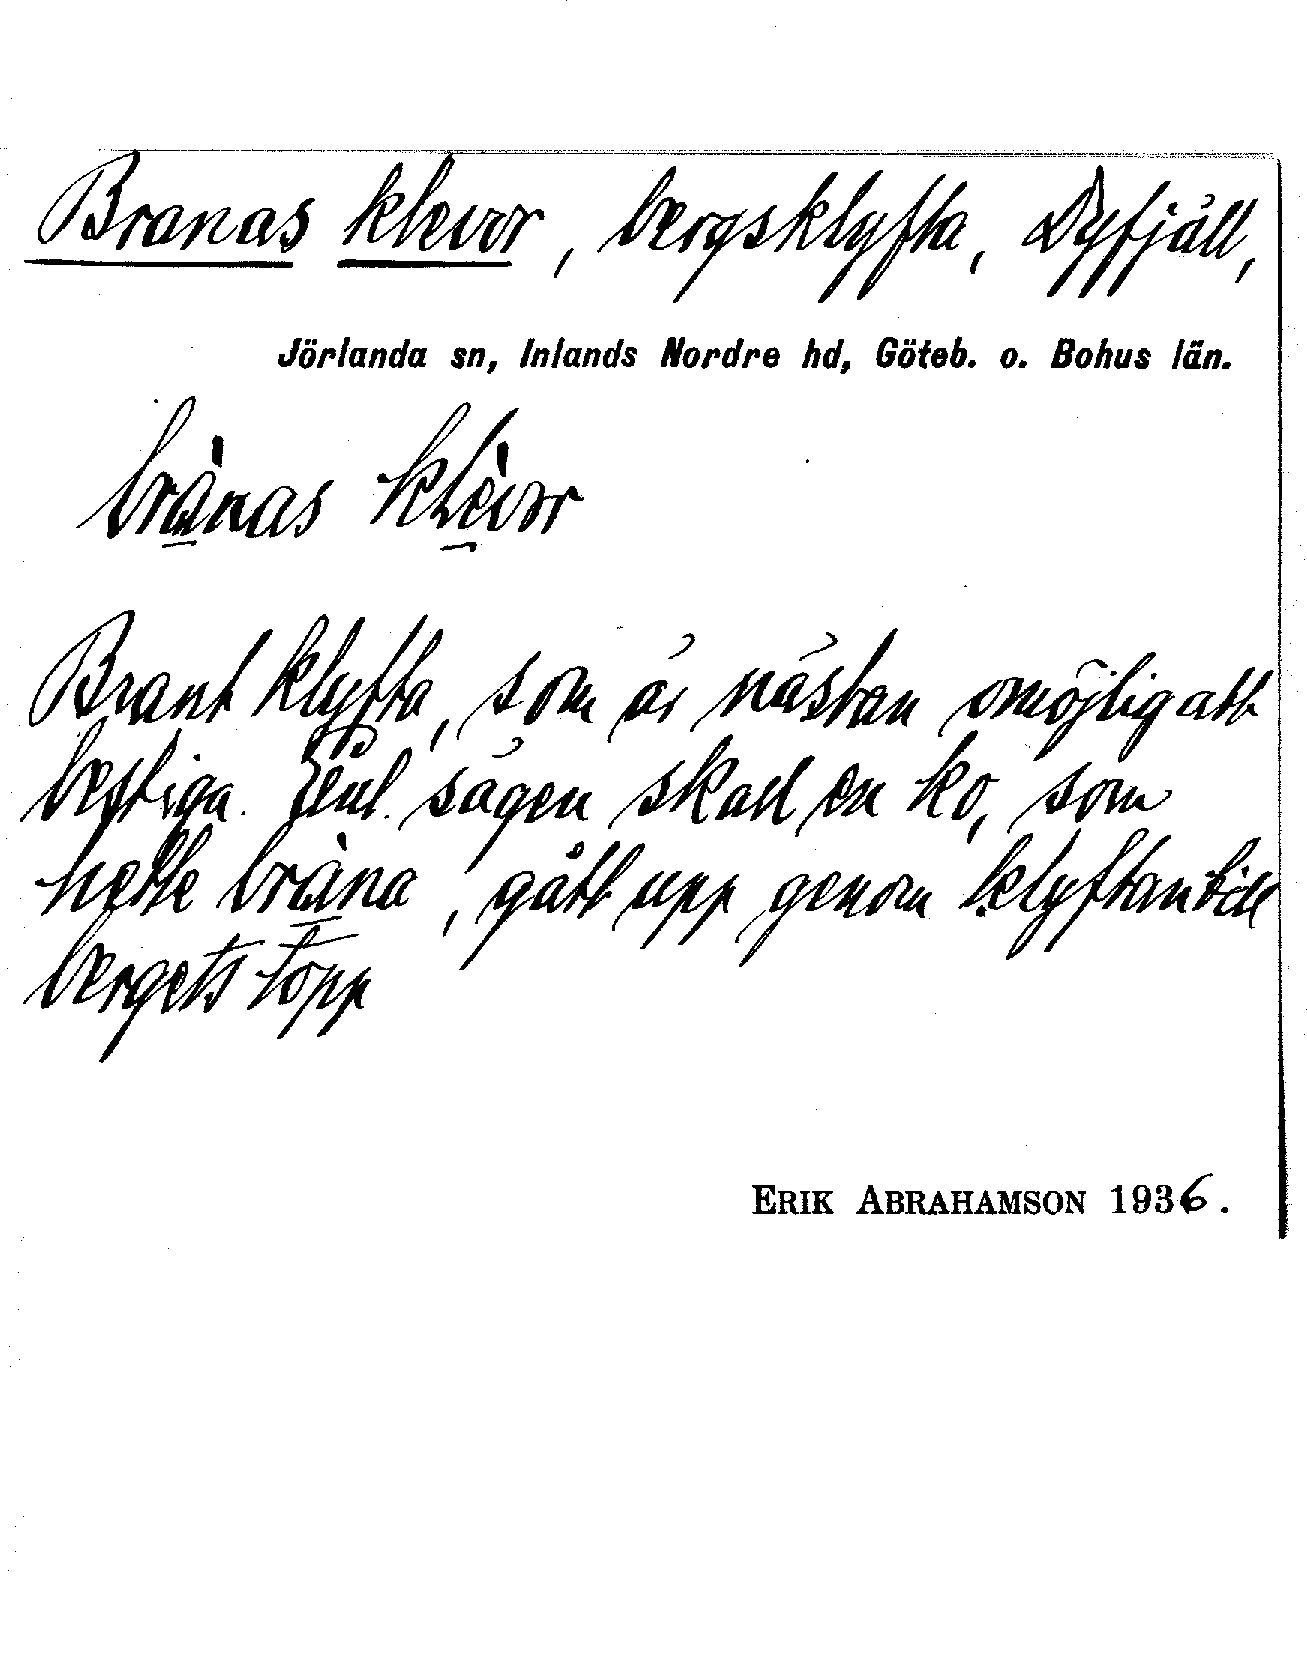 Branas klevor, bergsklyfta, Dyfjäll,
Jörlanda sn, Inlands Nordre hd, Göteb. o. Bohus län.
brànas klèvor
Brant klyfta, som är nästan omöjlig att
bestiga. Enl. sägen skall en ko, som
hette bràna, gått upp genom klyftan till
bergets topp
ERIK ABRAHAMSON 1936.